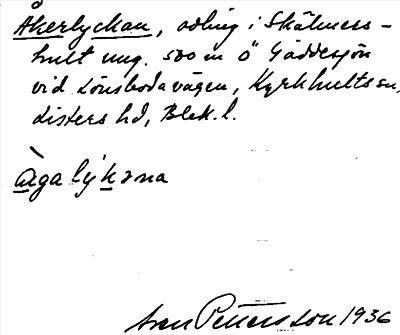 Åkerlyckan, odling i Skälmers-
hult ung. 500 m Ö Gäddesjön
vid Lönsbodavägen, Kyrkhults sn,
Listers hd, Blek. l.
àgalýkəna
Sven Pettersson 1936